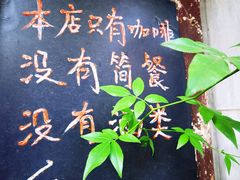 本店只有咖啡
没有简餐
没有